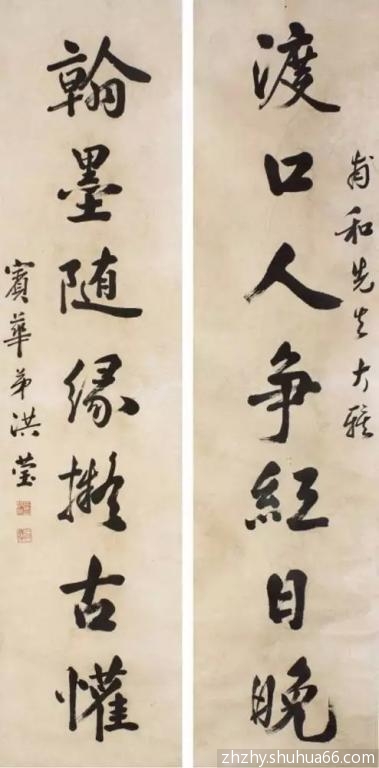 甫和先生大雅
渡口人争紅日晚
翰墨随緣擬古懽
賓華弟洪瑩
zhzhy.shuhua66.com